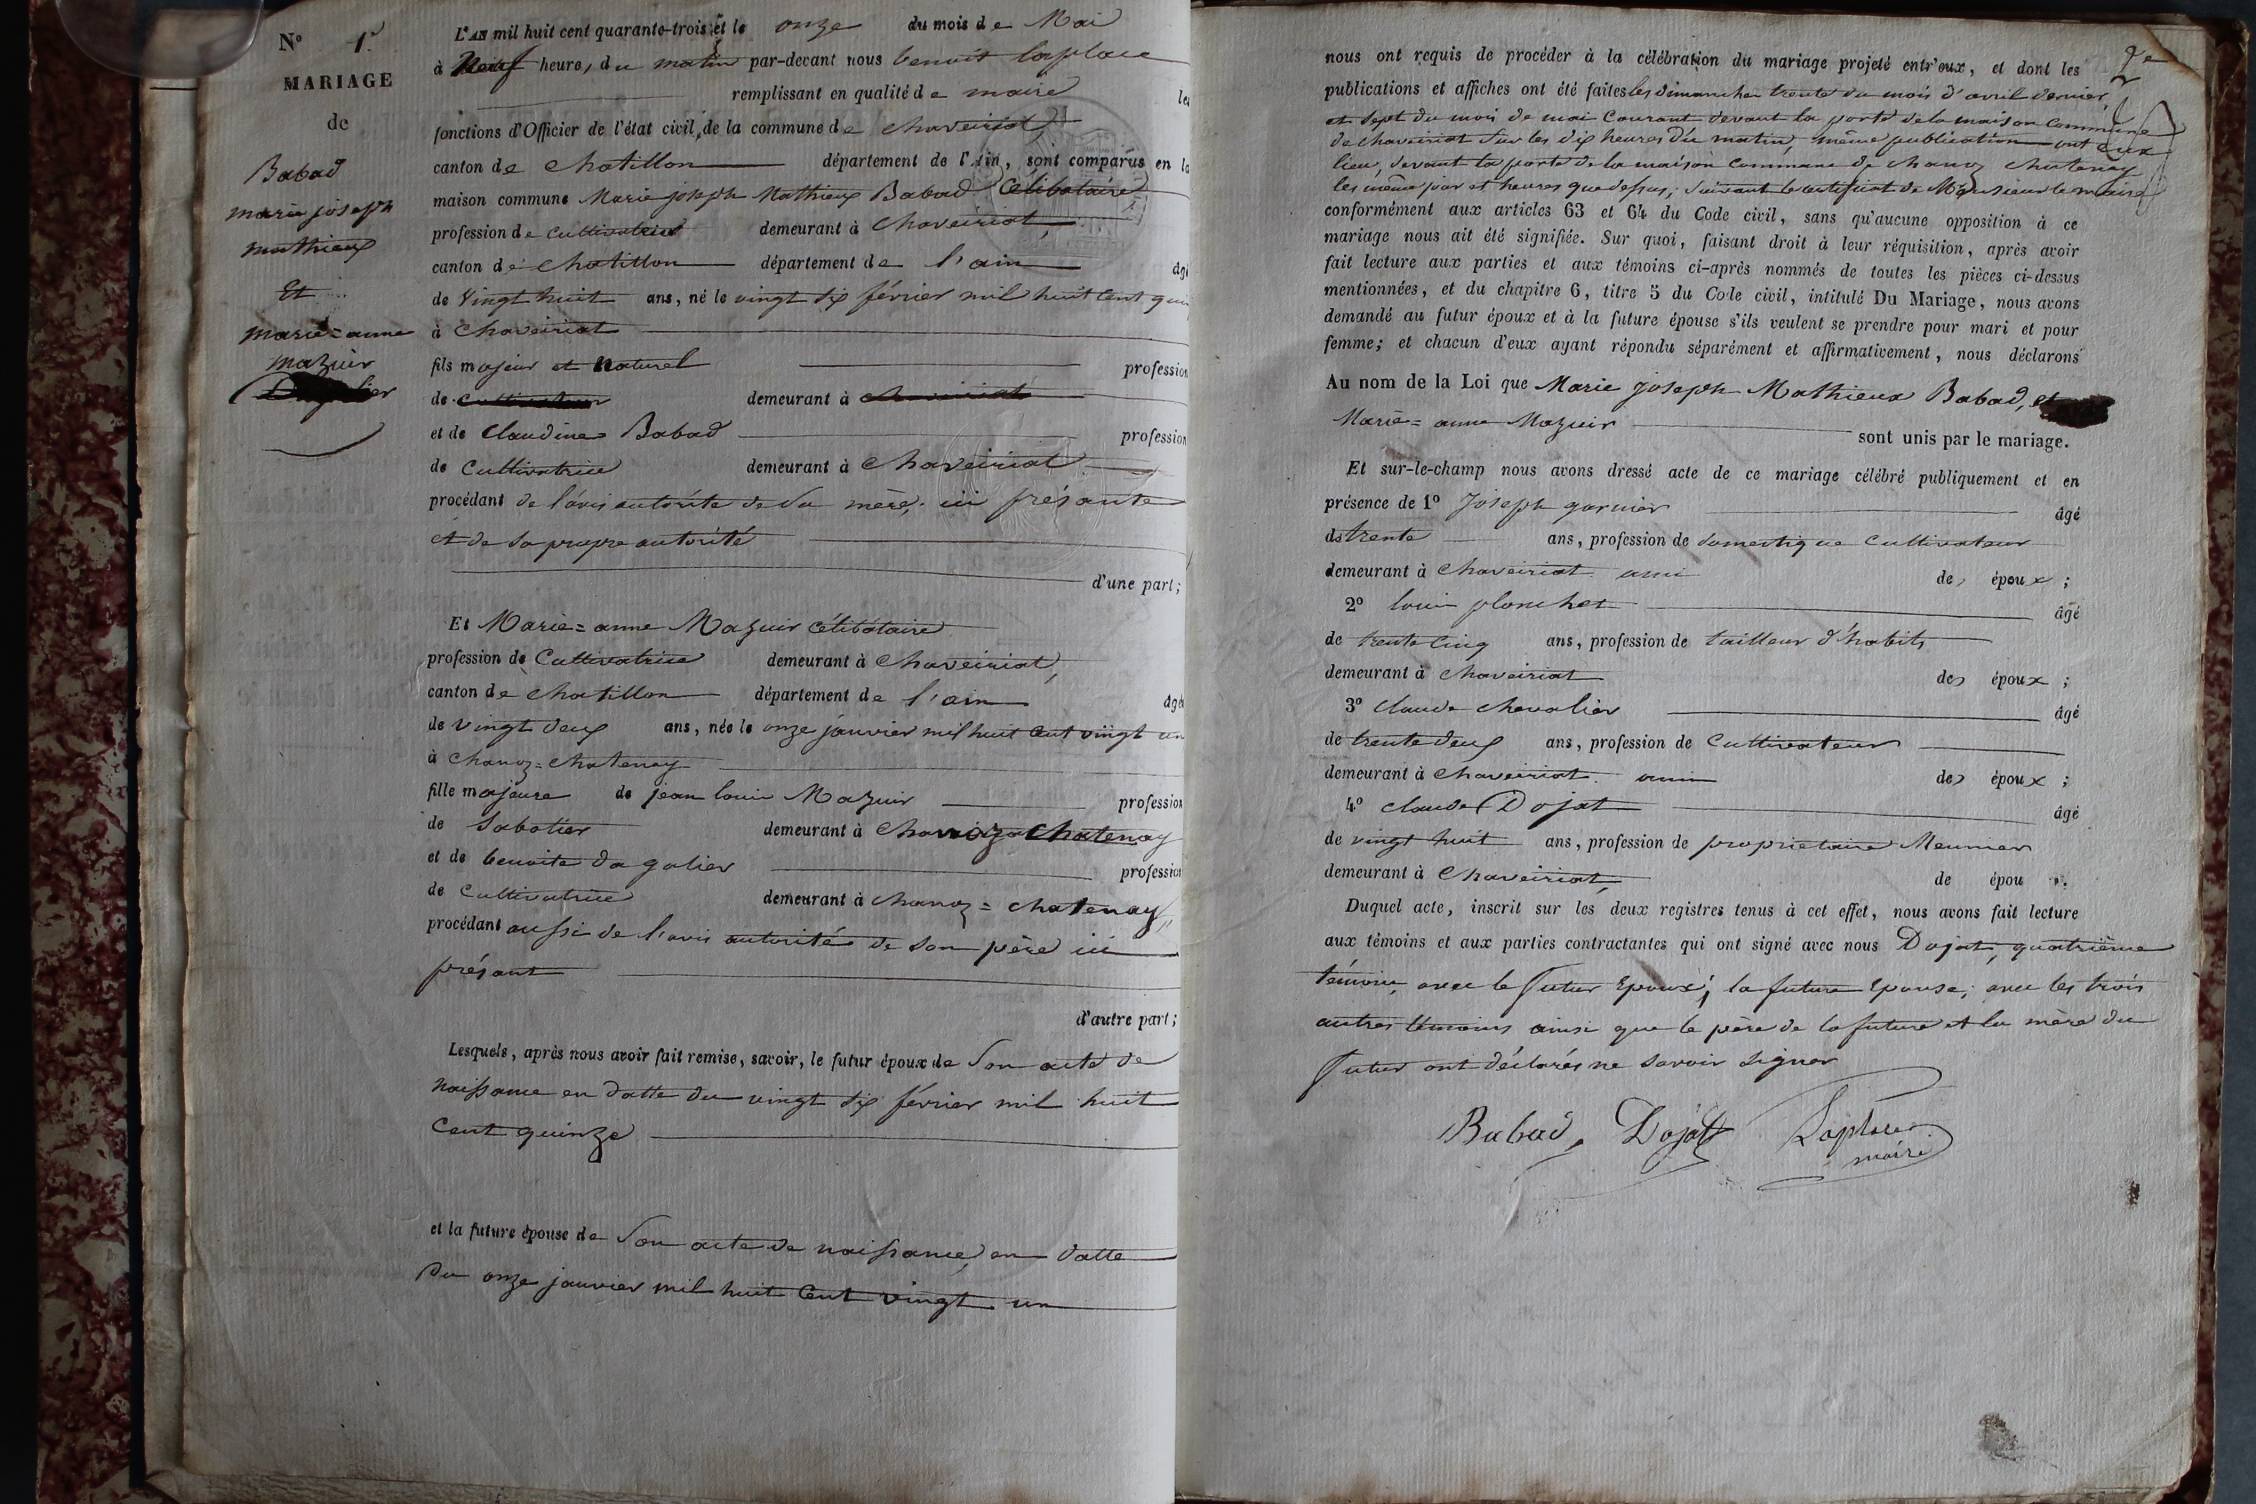 N° 1.
MARIAGE
de
Babad
marie joseph
mathieux
Et
marie=anne
mazuir
L'AN mil huit cent quarante-trois et le onze du mois de Mai
à Neuf heure, du matin par-devant nous benoit laplace
remplissant en qualité de maire les
fonctions d'Officier de l'état civil, de la commune de chaveiriat,
canton de chatillon département de l'Ain, sont comparus en la
maison commune Marie joseph Mathieux Babad Célibataire
profession de cultivateur demeurant à chaveiriat,
canton de chatillon département de l'ain âgé
de vingt huit ans, né le vingt six février mil huit cent quin
à chaveiriat
fils majeur et Naturel profession
de cultivateur demeurant à chaveiriat
et de Claudine Babad profession
de cultivatrice demeurant à chaveiriat
procédant de l'avis autorité de sa mère, ici présante
et de sa propre autorité
d'une part;
Et Marie=anne Mazuir célibataire
profession de Cultivatrice demeurant à chaveiriat,
canton de chatillon département de l'ain âgée
de vingt deux ans, née le onze janvier mil huit cent vingt un
à chanoz=chatenay
fille majeure de jean louis Mazuir profession
de Sabotier demeurant à chanoz chatenay
et de benoite dagalier profession
de cultivatrice demeurant à chanoz=chatenay,
procédant aussi de l'avis autorité de son père ici
présant
d'autre part;
Lesquels, après nous avoir fait remise, savoir, le futur époux de son acte de
naissance en datte du vingt six février mil huit
cent quinze
et la future épouse de son acte de naissance, en datte
du onze janvier mil huit cent vingt un
nous ont requis de procéder à la célébration du mariage projeté entr'eux, et dont les
publications et affiches ont été faites les dimanches trente du mois d'avril dernier,
et sept du mois de mai courant devant la porte de la maison commune
de chaveiriat sur les dix heures du matin, même publication ont eux
lieu, devant la porte de la maison commune de chanoz chatenay
les même jour et heures que dessus; suivant le certifiat de Monsieur le maire
conformément aux articles 63 et 64 du Code civil, sans qu'aucune opposition à ce
mariage nous ait été signifiée. Sur quoi, faisant droit à leur réquisition, après avoir
fait lecture aux parties et aux témoins ci-après nommés de toutes les pièces ci-dessus
mentionnées, et du chapitre 6, titre 5 du Code civil, intitulé Du Mariage, nous avons
demandé au futur époux et à la future épouse s'ils veulent se prendre pour mari et pour
femme; et chacun d'eux ayant répondu séparément et affirmativement, nous déclarons
Au nom de la Loi que Marie joseph Mathieux Babad, et
Marie=anne Mazuir sont unis par le mariage.
Et sur-le-champ nous avons dressé acte de ce mariage célébré publiquement et en
présence de 1° joseph garnier âgé
de trente ans, profession de domestique cultivateur
demeurant à chaveiriat ami des époux;
2° louis plonchet âgé
de trente cinq ans, profession de tailleur d'habits
demeurant à chaveiriat des époux;
3° claude chevalier âgé
de trente deux ans, profession de cultivateur
demeurant à chaveiriat ami des époux;
4° claude Dojat âgé
de vingt huit ans, profession de proprietaire Meunier
demeurant à chaveiriat, de épou .
Duquel acte, inscrit sur les deux registres tenus à cet effet, nous avons fait lecture
aux témoins et aux parties contractantes qui ont signé avec nous Dojat, quatrième
témoin, avec le futur Epoux; la future Epouse; avec les trois
autres témoins ainsi que le père de la future et la mère du
futur ont déclarés ne savoir signer
Babad, Dojat Laplace
maire